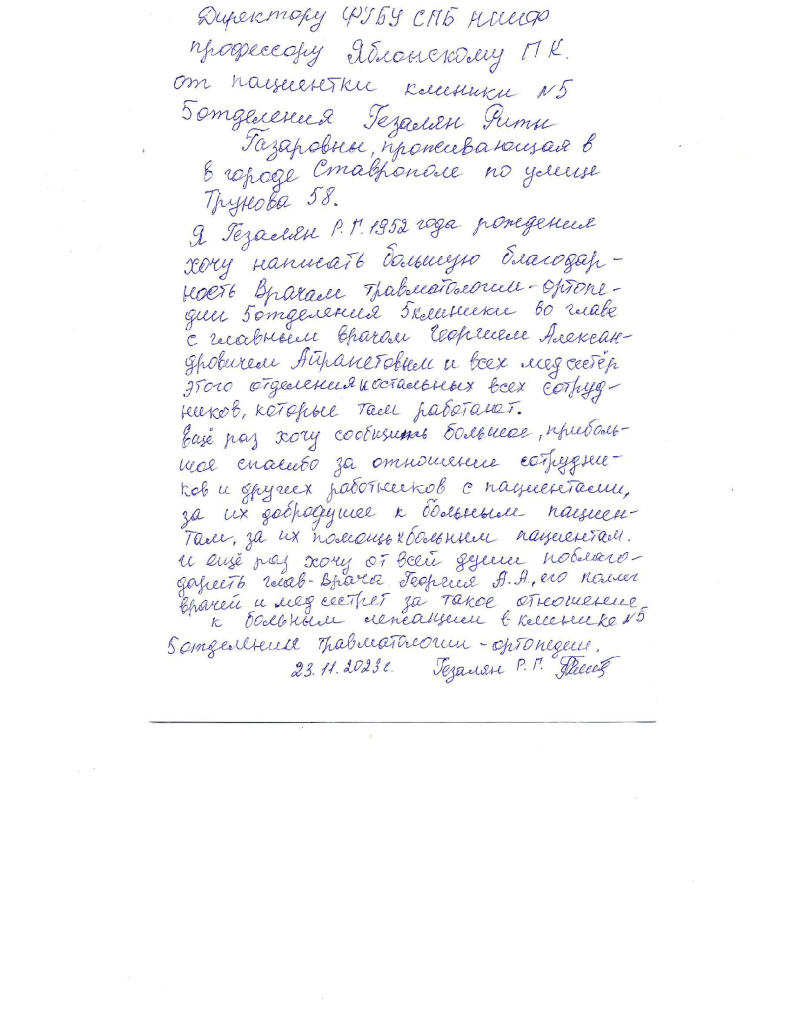 Директору ФГБУ СПБ НИИФ
профессору Яблонскому П.К.
от пациентки клиники №5
5 отделения Гезалян Риты
Газаровны, проживающая в
в городе Ставрополе по улице
Трунова 58.
Я Гезалян Р.Г. 1952 года рождения
хочу написать большую благодар-
ность Врачам травматологии-ортопе-
дии 5 отделения 5 клиники во главе
с главным врачом Георгием Алексан-
дровичем Айрапетовым и всех медсестёр
этого отделения и остальных всех сотруд-
ников, которые там работают.
Ещё раз хочу сообщить большое, приболь-
шое спасибо за отношение сотрудни-
ков и других работников с пациентами,
за их добродушее к больным пациен-
там, за их помощь к больным пациентам.
и ещё раз хочу от всей души поблаго-
дарить глав-Врача Георгия А.А., его
врачей и медсестрет за такое отношение
к больным лежащим в клинике №5
5 отделения травматологии-ортопедии.
23.11.2023 г. Гезалян Р.Г.